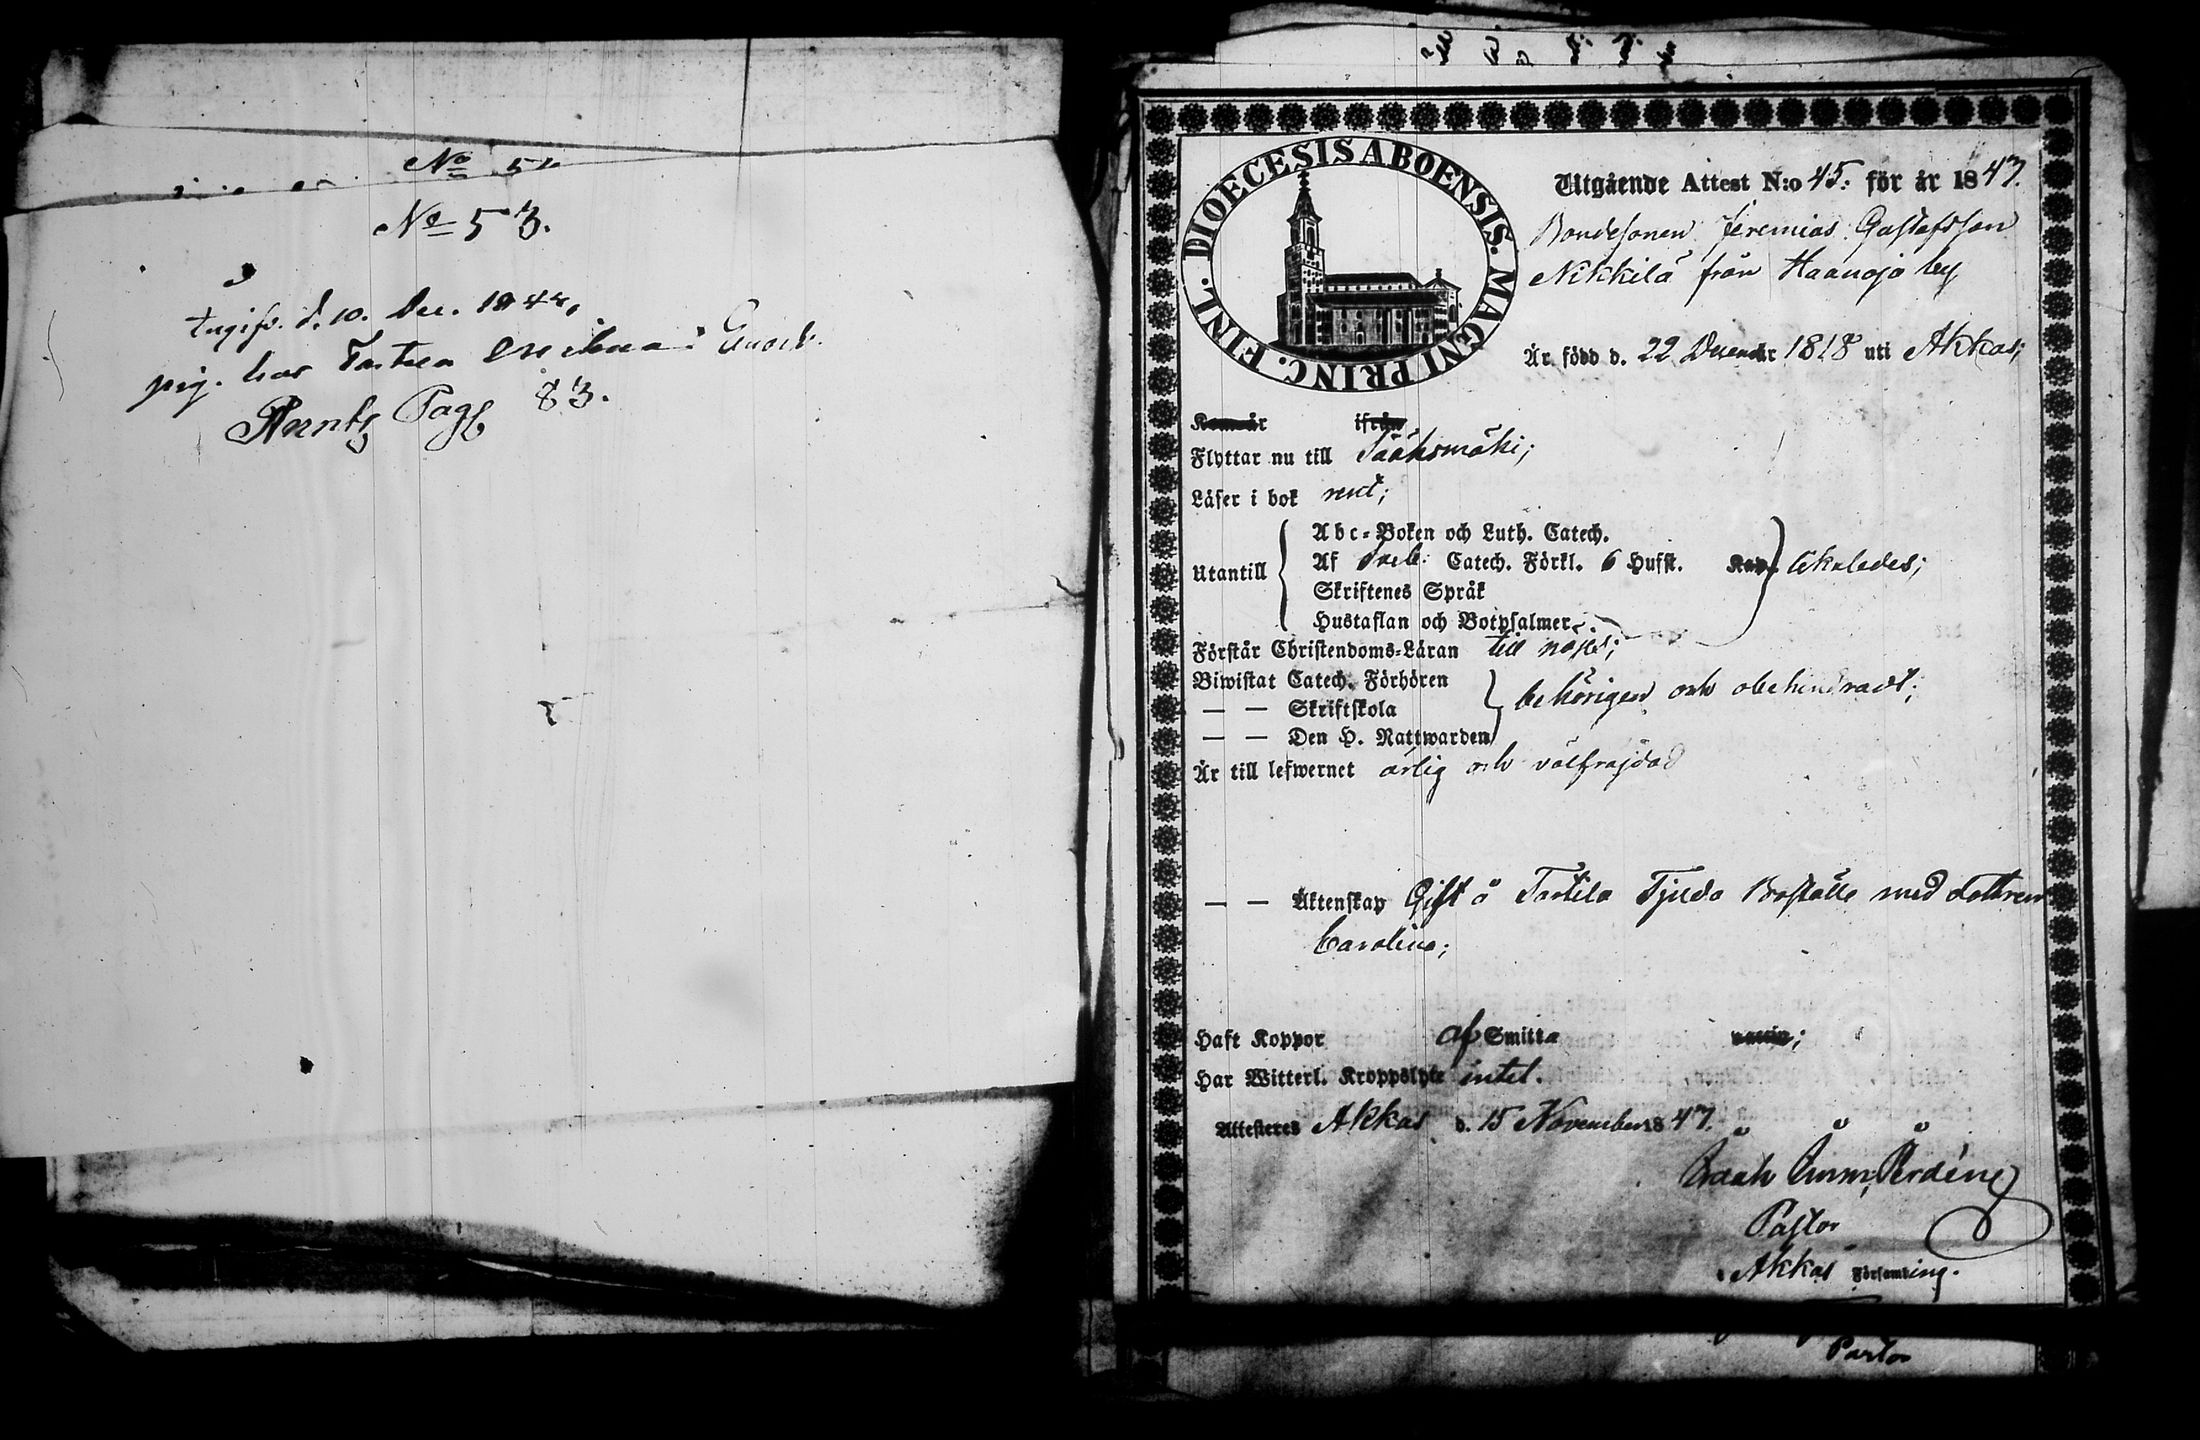 No 53.
d. 10. Dec. 184
pig. hos
Pag 83.
DIOECESIS ABOENSIS. MAGNI PRINC. FINL.
Utgående Attest N:o 45: för år 1847.
Bondesonen Jeremias Gustafsson
Nikkilä från Haanoja by
Är född d. 22 December 1818 uti Akkas;
ifrån
Flyttar nu till Sääksmäki;
Läser i bok rent;
Abc-Boken och Luth. Catech.
Utantill Af Sveb. Catech. Förkl. 6 Hufst. likaledes;
Skriftenes Språk
Hustaflan och Botpsalmer
Förstår Christendoms-Läran till nöjes;
Biwistat Catech. Förhören
— — Skriftskola behörigen och obehindradt;
— — Den H. Nattwarden
Är till lefwernet ärlig och välfrejdad
— — Äktenskap Gift å Tarttila Boställe med dottren
Carolina;
Haft Koppor af Smitta
Har Witterl. Kroppslyte intet.
Attesteres Akkas d. 15 November 1847.
Pastor
Akkas Församling.
Pastor